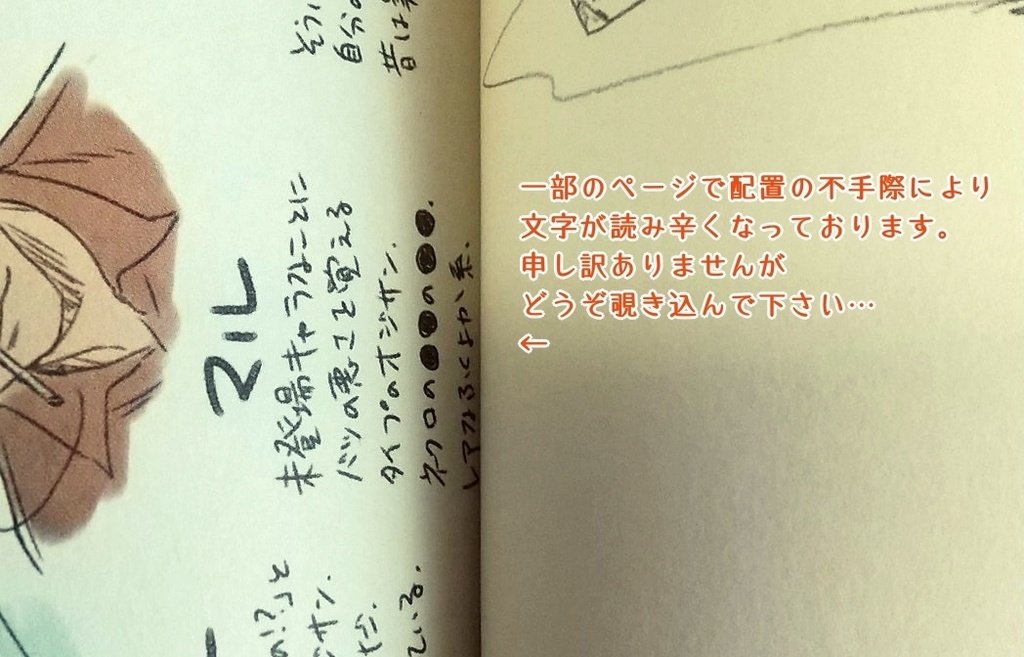 そうい
自分の
昔は
マル
未登場キャラなことに
バツの悪さを覚える
タイプのオジサン.
ネクロの●●●の●●●.
レアなふくよか系.
の!?」と
ジサン.
ている.
一部のページで配置の不手際により
文字が読み辛くなっております。
申し訳ありませんが
どうぞ覗き込んで下さい…
←